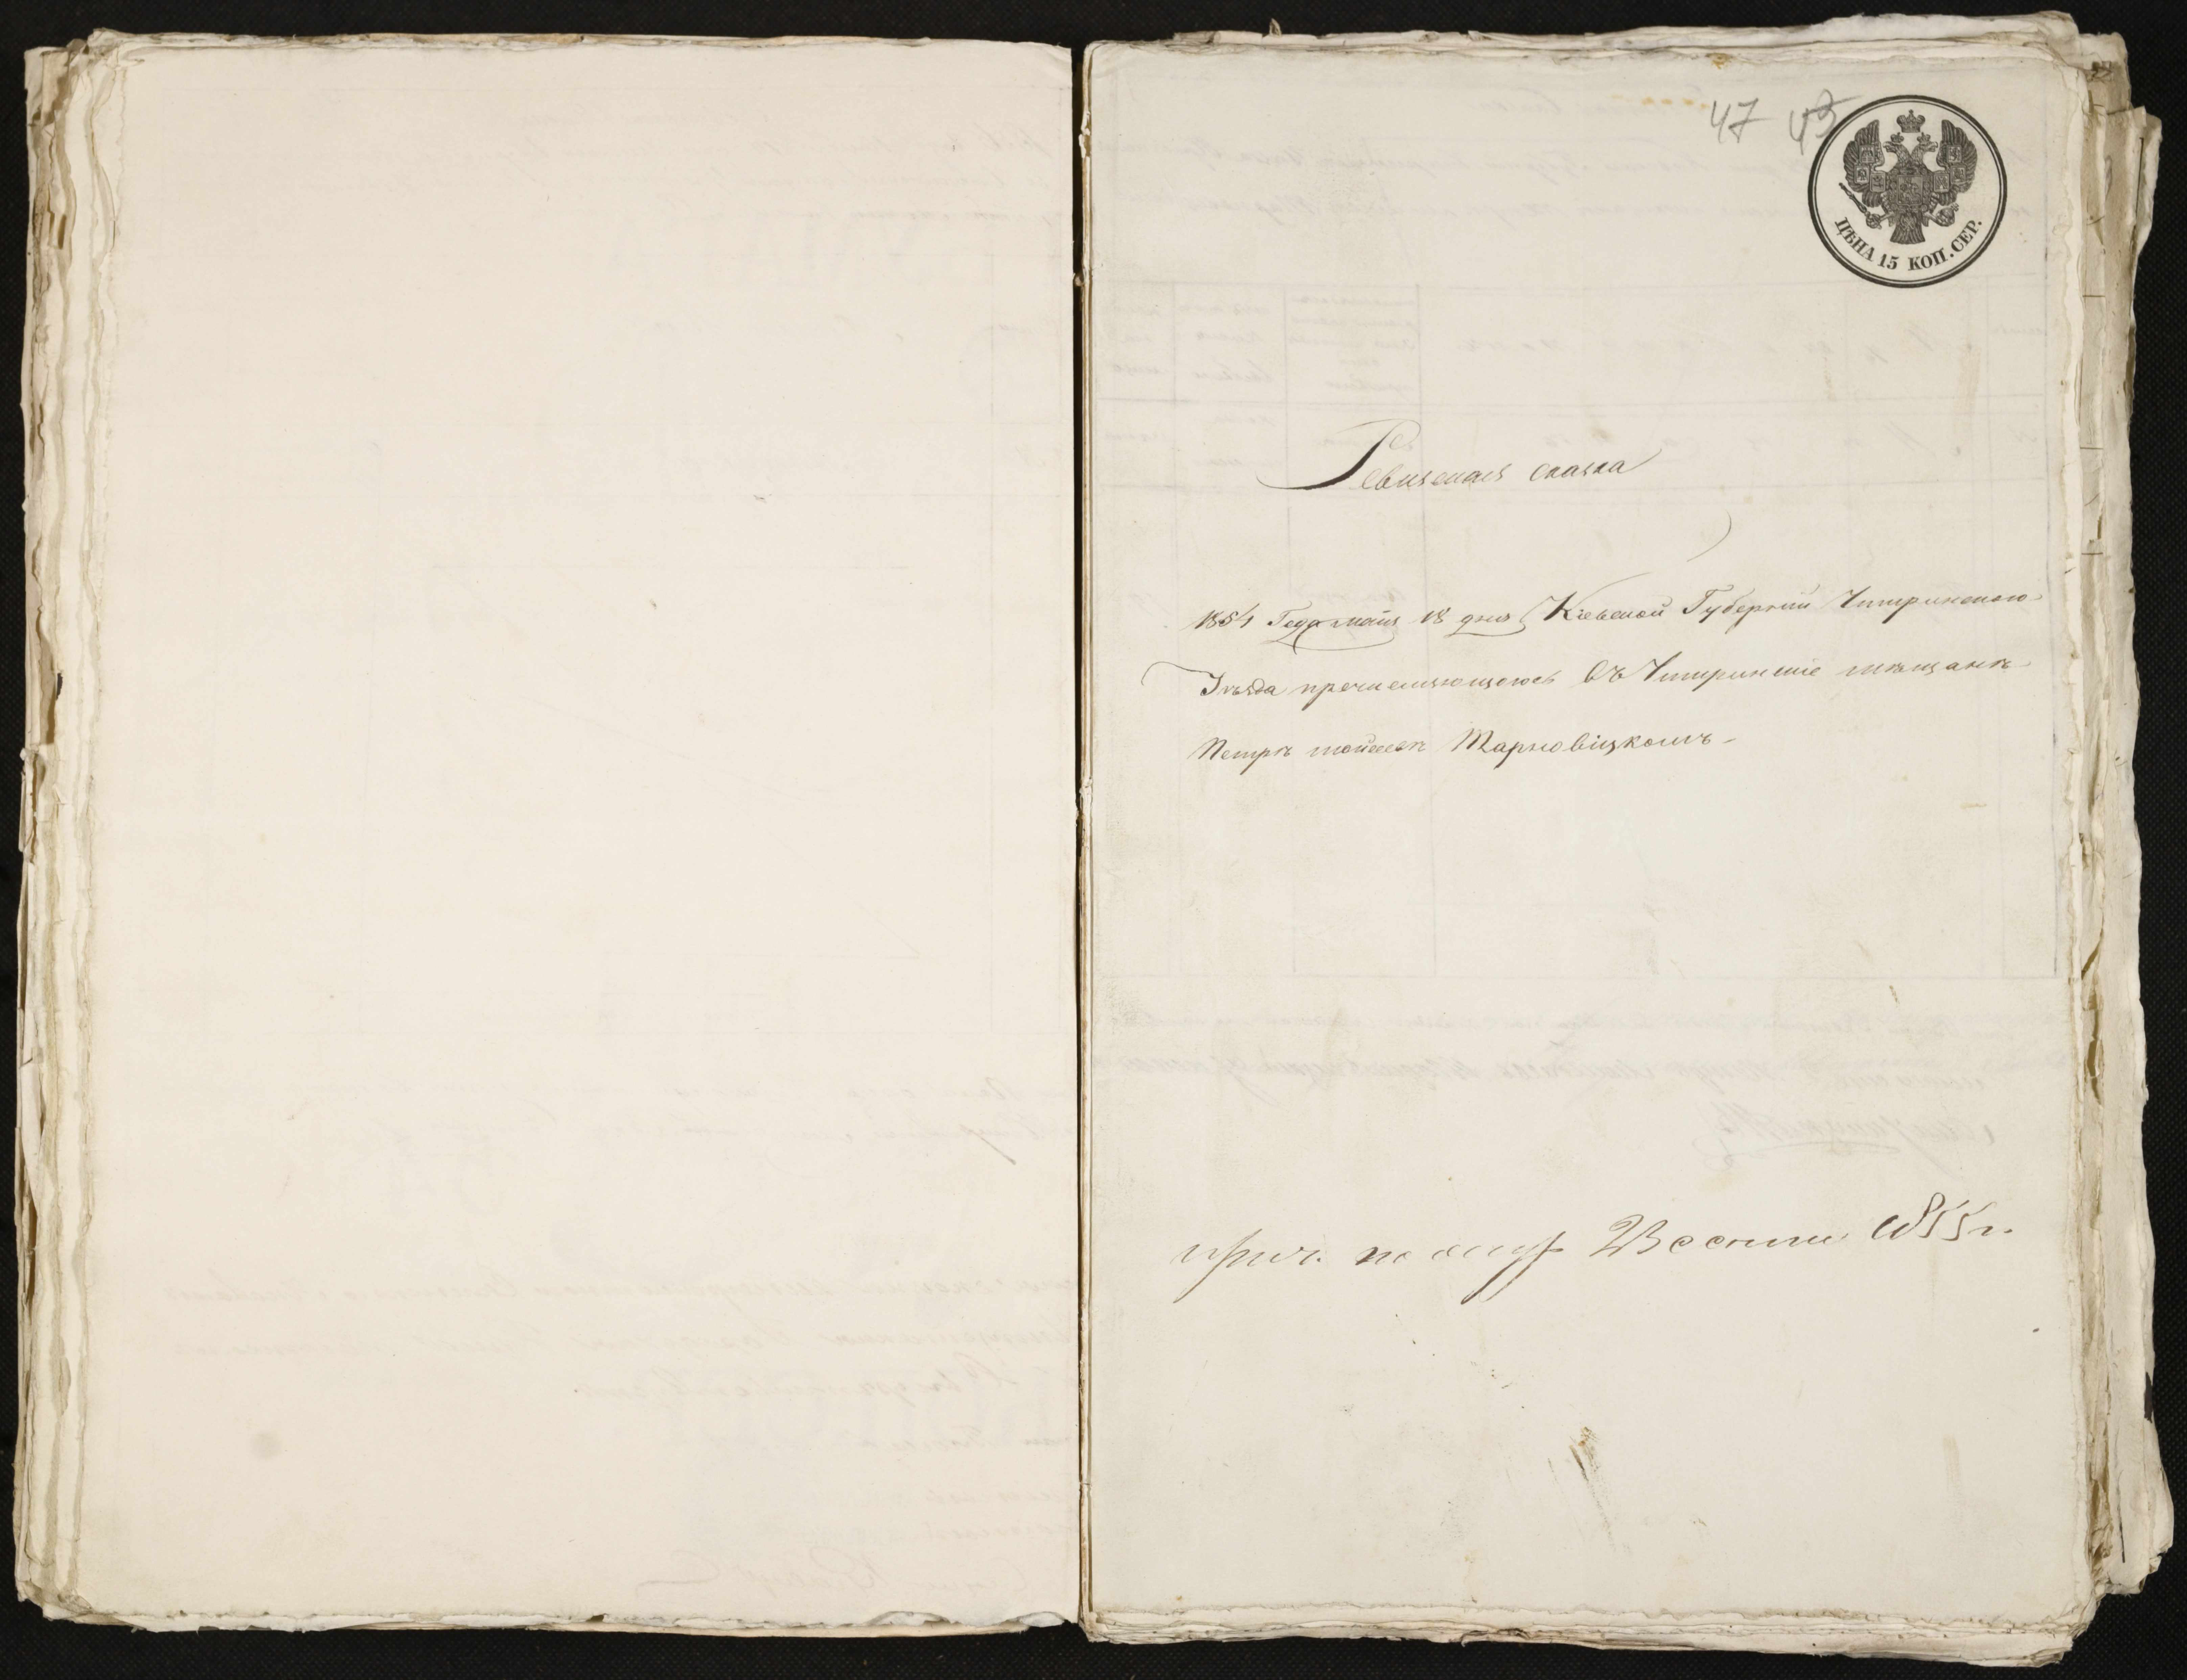 47 43
ЦѢНА 15 КОП. СЕР.
Ревизская сказка
1854 Года мая 18 дня Кіевской Губерніи Чигринского
Уѣзда пречисляющегося въ Чигринскіе мѣщанѣ
Петрѣ Тарновіцкомъ
прич. по 2й 1855 г.